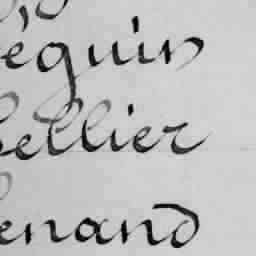 éguin
ellier
enand